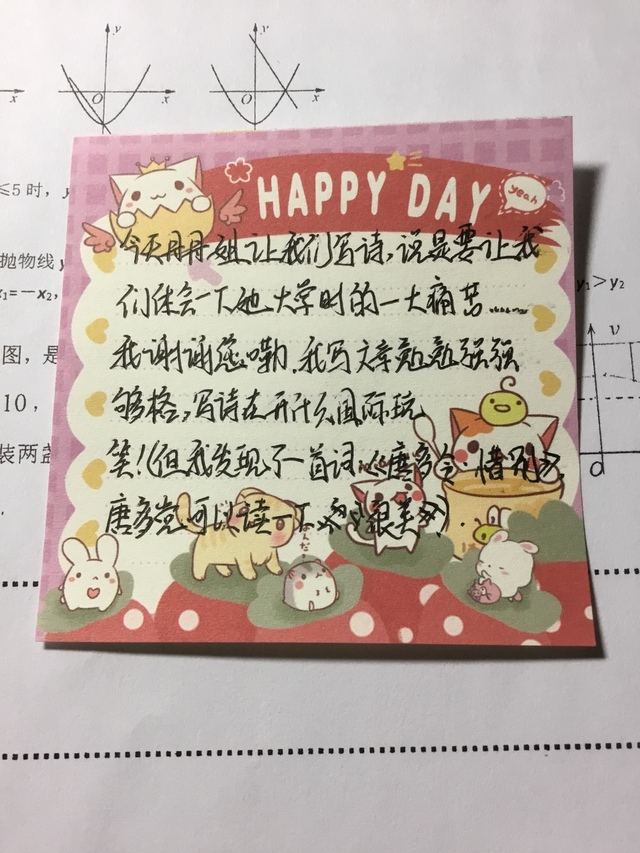 y
y
O
x
O
x
x
≤5时，
抛物线y
x₁=-x₂，
y₁>y₂
图，是
10，
装两盏
v
0
HAPPY DAY
yeah
今天丹丹姐让我们写诗，说是要让我
们体会一下她大学时的一大痛苦……
我谢谢您嘞，我写文章勉勉强强
够格，写诗在开什么国际玩
笑！(但我发现了一首词《唐多令·惜别》，
唐多党可以读一下，很美)